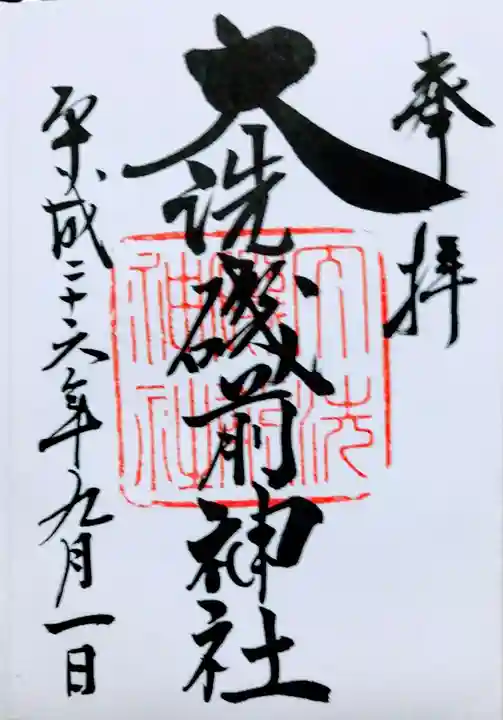 奉拝
大洗磯前神社
大洗磯前神社
平成二十六年九月一日